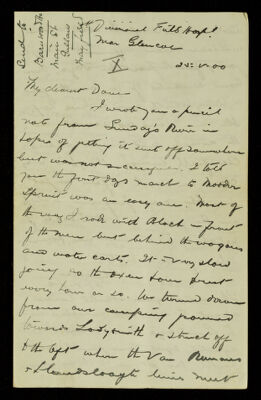 Send to
Main St
Divisional Field Hospl
Near Glencoe
X
22-V-00
My dearest Dave
I wrote you a pencil
note from Sunday's River in
hopes of getting it sent off somewhere
but was not successful. I told
you the first days march to Modder
Spruit was an easy one. Most of
the way I rode with Black in front
of the men but behind the wagons
and water carts. It is very slow
going as the oxen have to rest
every hour or so. We turned down
from our camping ground
towards Ladysmith & struck off
to the left when the Van Reenens
& Elandslaagte lines meet